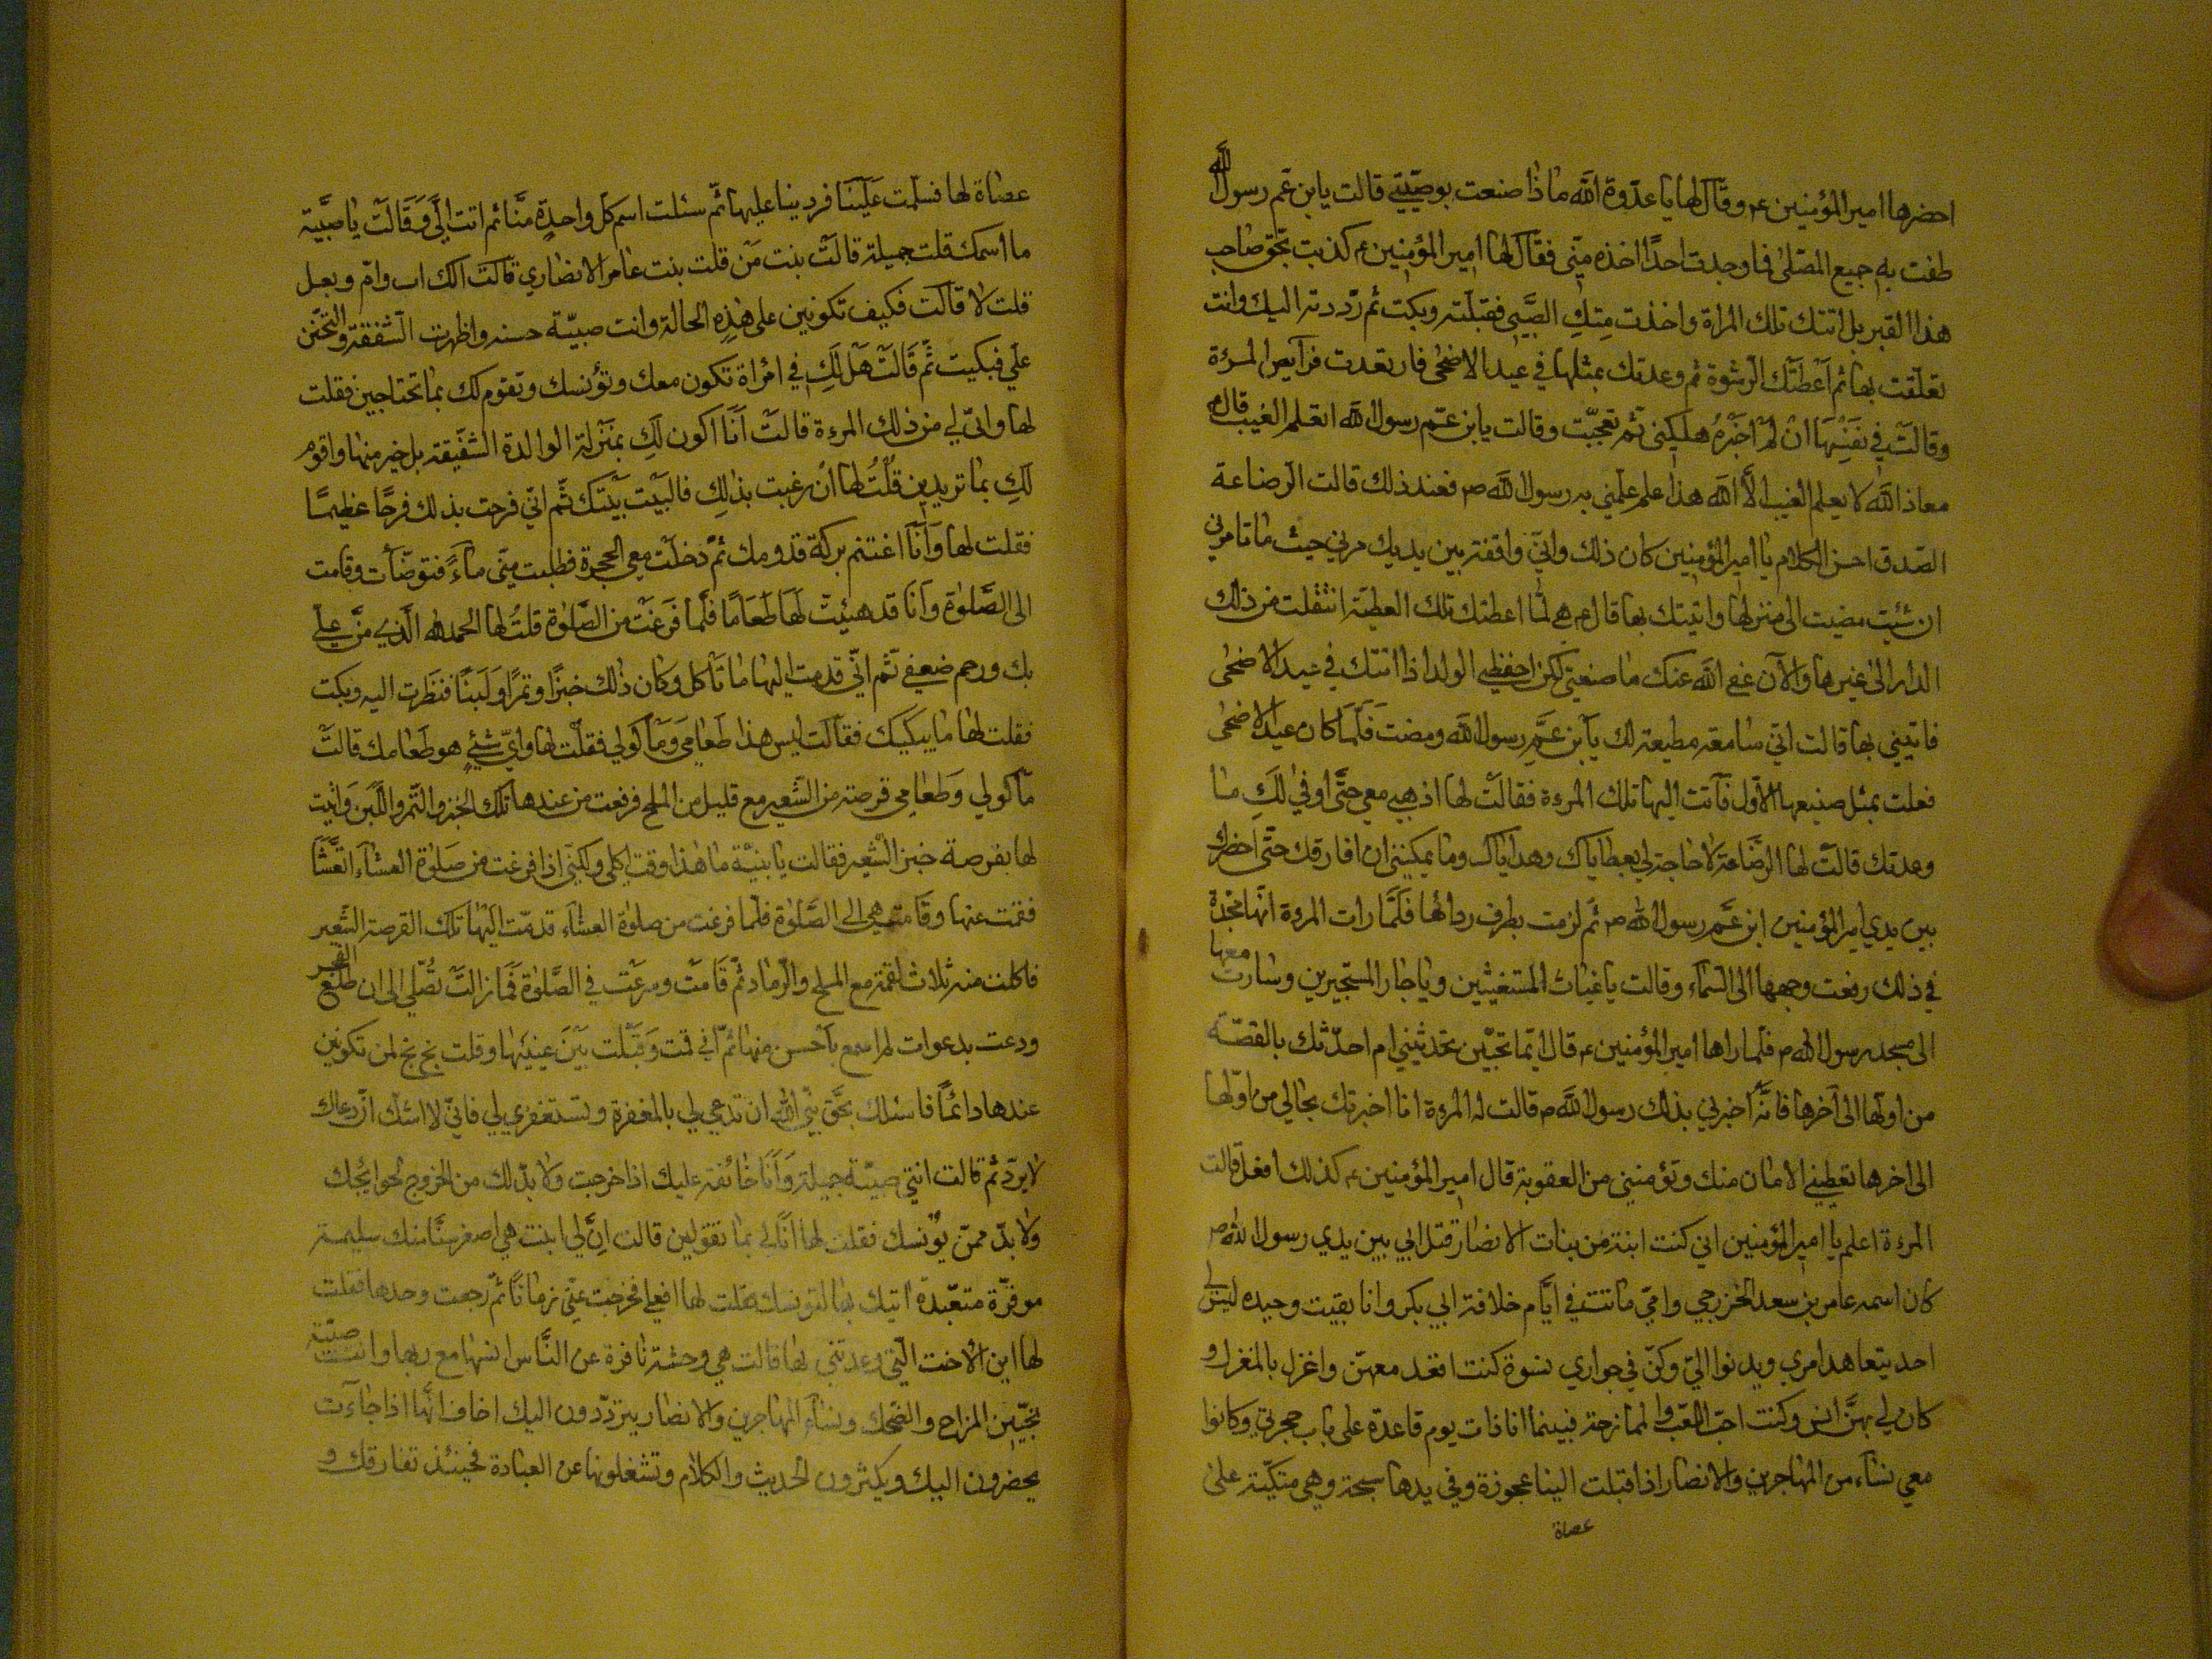 احضرها امير المؤمنين ع وقال لها يا عدوة الله ماذا صنعت بوصيتي قالت يابن عم رسول الله
طفت به جميع المصلى فما وجدت احدًا اخذه منى فقال لها امير المؤمنين ع كذبت بحق صاحب
هذا القبر بل اتتك تلك المراة واخذت منكِ الصبى فقبلته وبكت ثم رددته اليك وانت
تعلقت بها ثم اعطتك الرشوة ثم وعدتك بمثلها في عيد الاضحى فارتعدت فرايص المرءة
وقالت في نفسها ان لم اخبره هلكنى ثم تعجبت وقالت يابن عم رسول الله اتعلم الغيب قال
معاذ الله لا يعلم الغيب الا الله هذا علم علمني به رسول الله ص فعند ذلك قالت الرضاعة
الصدق احسن الكلام يا امير المؤمنين كان ذلك واني واقفة بين يديك مرني حيث ما تامرني
ان شئت مضيت الى منزلها واتيتك بها قال ع هى لما اعطتك تلك العطية انتقلت من ذلك
الدار الى غيرها والآن عفى الله عنك ما صنعتى لكن احفظى الولد اذا اتتك في عيد الاضحى
فاتيني بها قالت انى سامعة مطيعة لك يابن عم رسول الله ومضت فلما كان عيد الاضحى
فعلت بمثل صنيعها الاول فاتت اليها تلك المرءة فقالت لها اذهبى معي حتى اوفي لكِ ما
وعدتك قالت لها الرضاعة لا حاجة لي بعطاياك وهداياك وما يمكننى ان افارقك حتى احضرك
بين يدي امير المؤمنين ابن عم رسول الله ص ثم لزمت بطرف ردائها فلما رات المروة انها مجدة
في ذلك رفعت وجهها الى السماء وقالت يا غياث المستغيثين ويا جار المستجيرين وسارت معها
الى مسجد رسول الله ص فلما راها امير المؤمنين ع قال ايما تحبين تحدثيني ام احدثك بالقصة
من اولها الى آخرها فانه اخبرني بذلك رسول الله ص قالت له المروة انا اخبرتك بحالي من اولها
الى اخرها تعطيني الامان منك وتؤمنيني من العقوبة قال امير المؤمنين ع كذلك افعل قالت
المرءة اعلم يا امير المؤمنين اني كنت ابنة من بنات الانصار قتل ابي بين يدي رسول الله ص
كان اسمه عامر بن سعد الخزرجي وامي ماتت في ايام خلافة ابي بكر وانا بقيت وحيده ليس لي
احد يتعاهد امري ويدنوا الي وكن في جواري نسوة كنت اقعد معهن واغزل بالمغزل و
كان لي بهن انس وكنت احب اللعب والممازحة فبينما انا ذات يوم قاعدة على باب حجرتي وكانوا
معي نساء من المهاجرين والانصار اذا قبلت الينا عجوزة وفي يدها سبحة وهي متكئة على
عصاة
عصاة لها فسلمت علينا فردينا عليها ثم سئلت اسم كل واحدة منا ثم اتت الي وقالت يا صبية
ما اسمك قلت جميلة قالت بنت من قلت بنت عامر الانصاري قالت الك اب وام وبعل
قلت لا قالت فكيف تكونين على هذه الحالة وانت صبيّة حسنه واظهرت الشفقة والتحنن
علي فبكيت ثم قالت هل لكِ في امراة تكون معك وتؤنسك وتقوم لك بما تحتاجين فقلت
لها واني لي من ذلك المرءة قالت انا اكون لكِ بمنزلة الوالدة الشفيقة بل خير منها واقوم
لكِ بما تريدين قلت لها ان رغبت بذلكِ فالبيت بيتك ثم اني فرحت بذلك فرحًا عظيمًا
فقلت لها وانا اغتنم بركة قدومك ثم دخلت معي الحجرة فطلبت منى ماءً فتوضأت وقامت
الى الصلوة وانا قد هيئت لها طعامًا فلما فرغت من الصلوة قلت لها الحمد لله الذي من علي
بك ورحم ضعفي ثم اني قدمت اليها ما تأكل وكان ذلك خبزًا وتمرًا ولبنًا فنظرت اليه وبكت
فقلت لها ما يبكيك فقالت ليس هذا طعامي وماكولي فقلت لها واي شئيٍ هو طعامك قالت
ماكولي وطعامي قرصة من الشعير مع قليل من الملح فرفعت من عندها تلك الخبز والتمر واللبن واتيت
لها بقرصة خبز الشعير فقالت يا بنية ما هذا وقت اكلى ولكنى اذا فرغت من صلوة العشاء اتعشا
فقمت عنها وقامت هي الى الصلوة فلما فرغت من صلوة العشاء قدمت اليها تلك القرصة الشعير
فاكلت منه ثلاث لقمة مع الملح والرماد ثم قامت وسرعت في الصلوة فما زالت تصلي الى ان طلع الفجر
ودعت بدعوات لم اسمع باحسن منها ثم اني قمت وقبلت بين عينيها وقلت بخ بخ لمن تكونين
عندها دائمًا فاسئلك بحق نبي الله ان تدعي لي بالمغفرة وتستغفري لي فاني لا اشك ان دعاك
لا يرد ثم قالت انتي صبيّة جميلة وانا خائفة عليك اذا خرجت ولا بد لك من الخروج لحوايجك
ولا بد ممن يؤنسك فقلت لها انا لي بما تقولين قالت ان لي ابنت هي اصغر سنا منك سليمة
موقرة متعبدة اتيك بها لتونسك فقلت لها افعلي فخرجت عني زمانًا ثم رجعت وحدها فقلت
لها اين الاخت التي وعدتني بها قالت هي وحشة نافرة عن الناس انسها مع ربها وانت صبية
تحبين المزاح والضحك ونساء المهاجرين والانصار يترددون اليك اخاف انها اذا جاءت
يحضرون اليك ويكثرون الحديث والكلام وتشغلونها عن العبادة فحينئذ تفارقك و